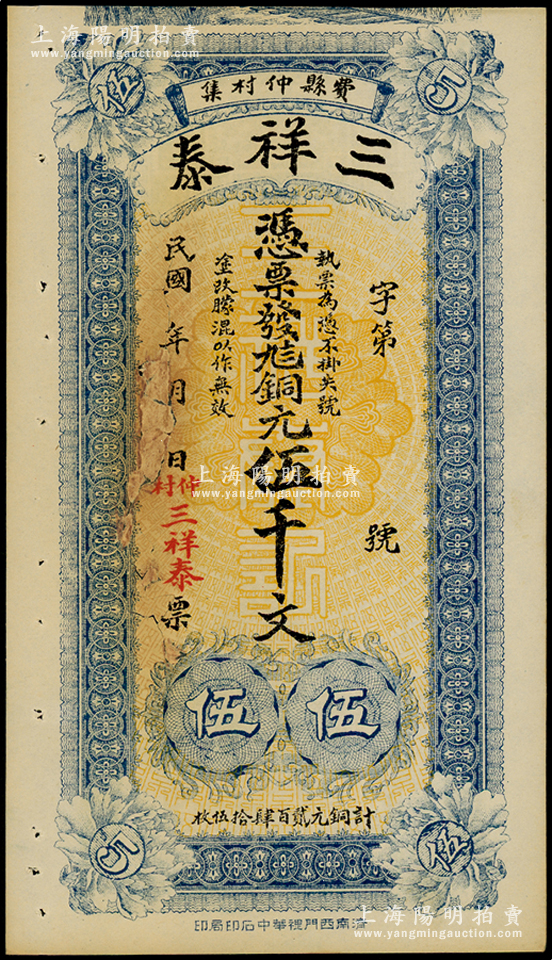 上海陽明拍賣
www.yangmingauction.com
費縣仲村集
三祥泰
伍
5
字第
號
執票為憑不掛失號
憑票發
銅元伍千文
塗改朦混以作無效
民國
年
月
日
仲村
三祥泰
票
上海陽明拍賣
www.yangmingauction.com
伍
伍
計銅元貳百肆拾伍枚
5
伍
濟南西門裡華中石印局印
上海陽明拍賣
www.yangmingauction.com